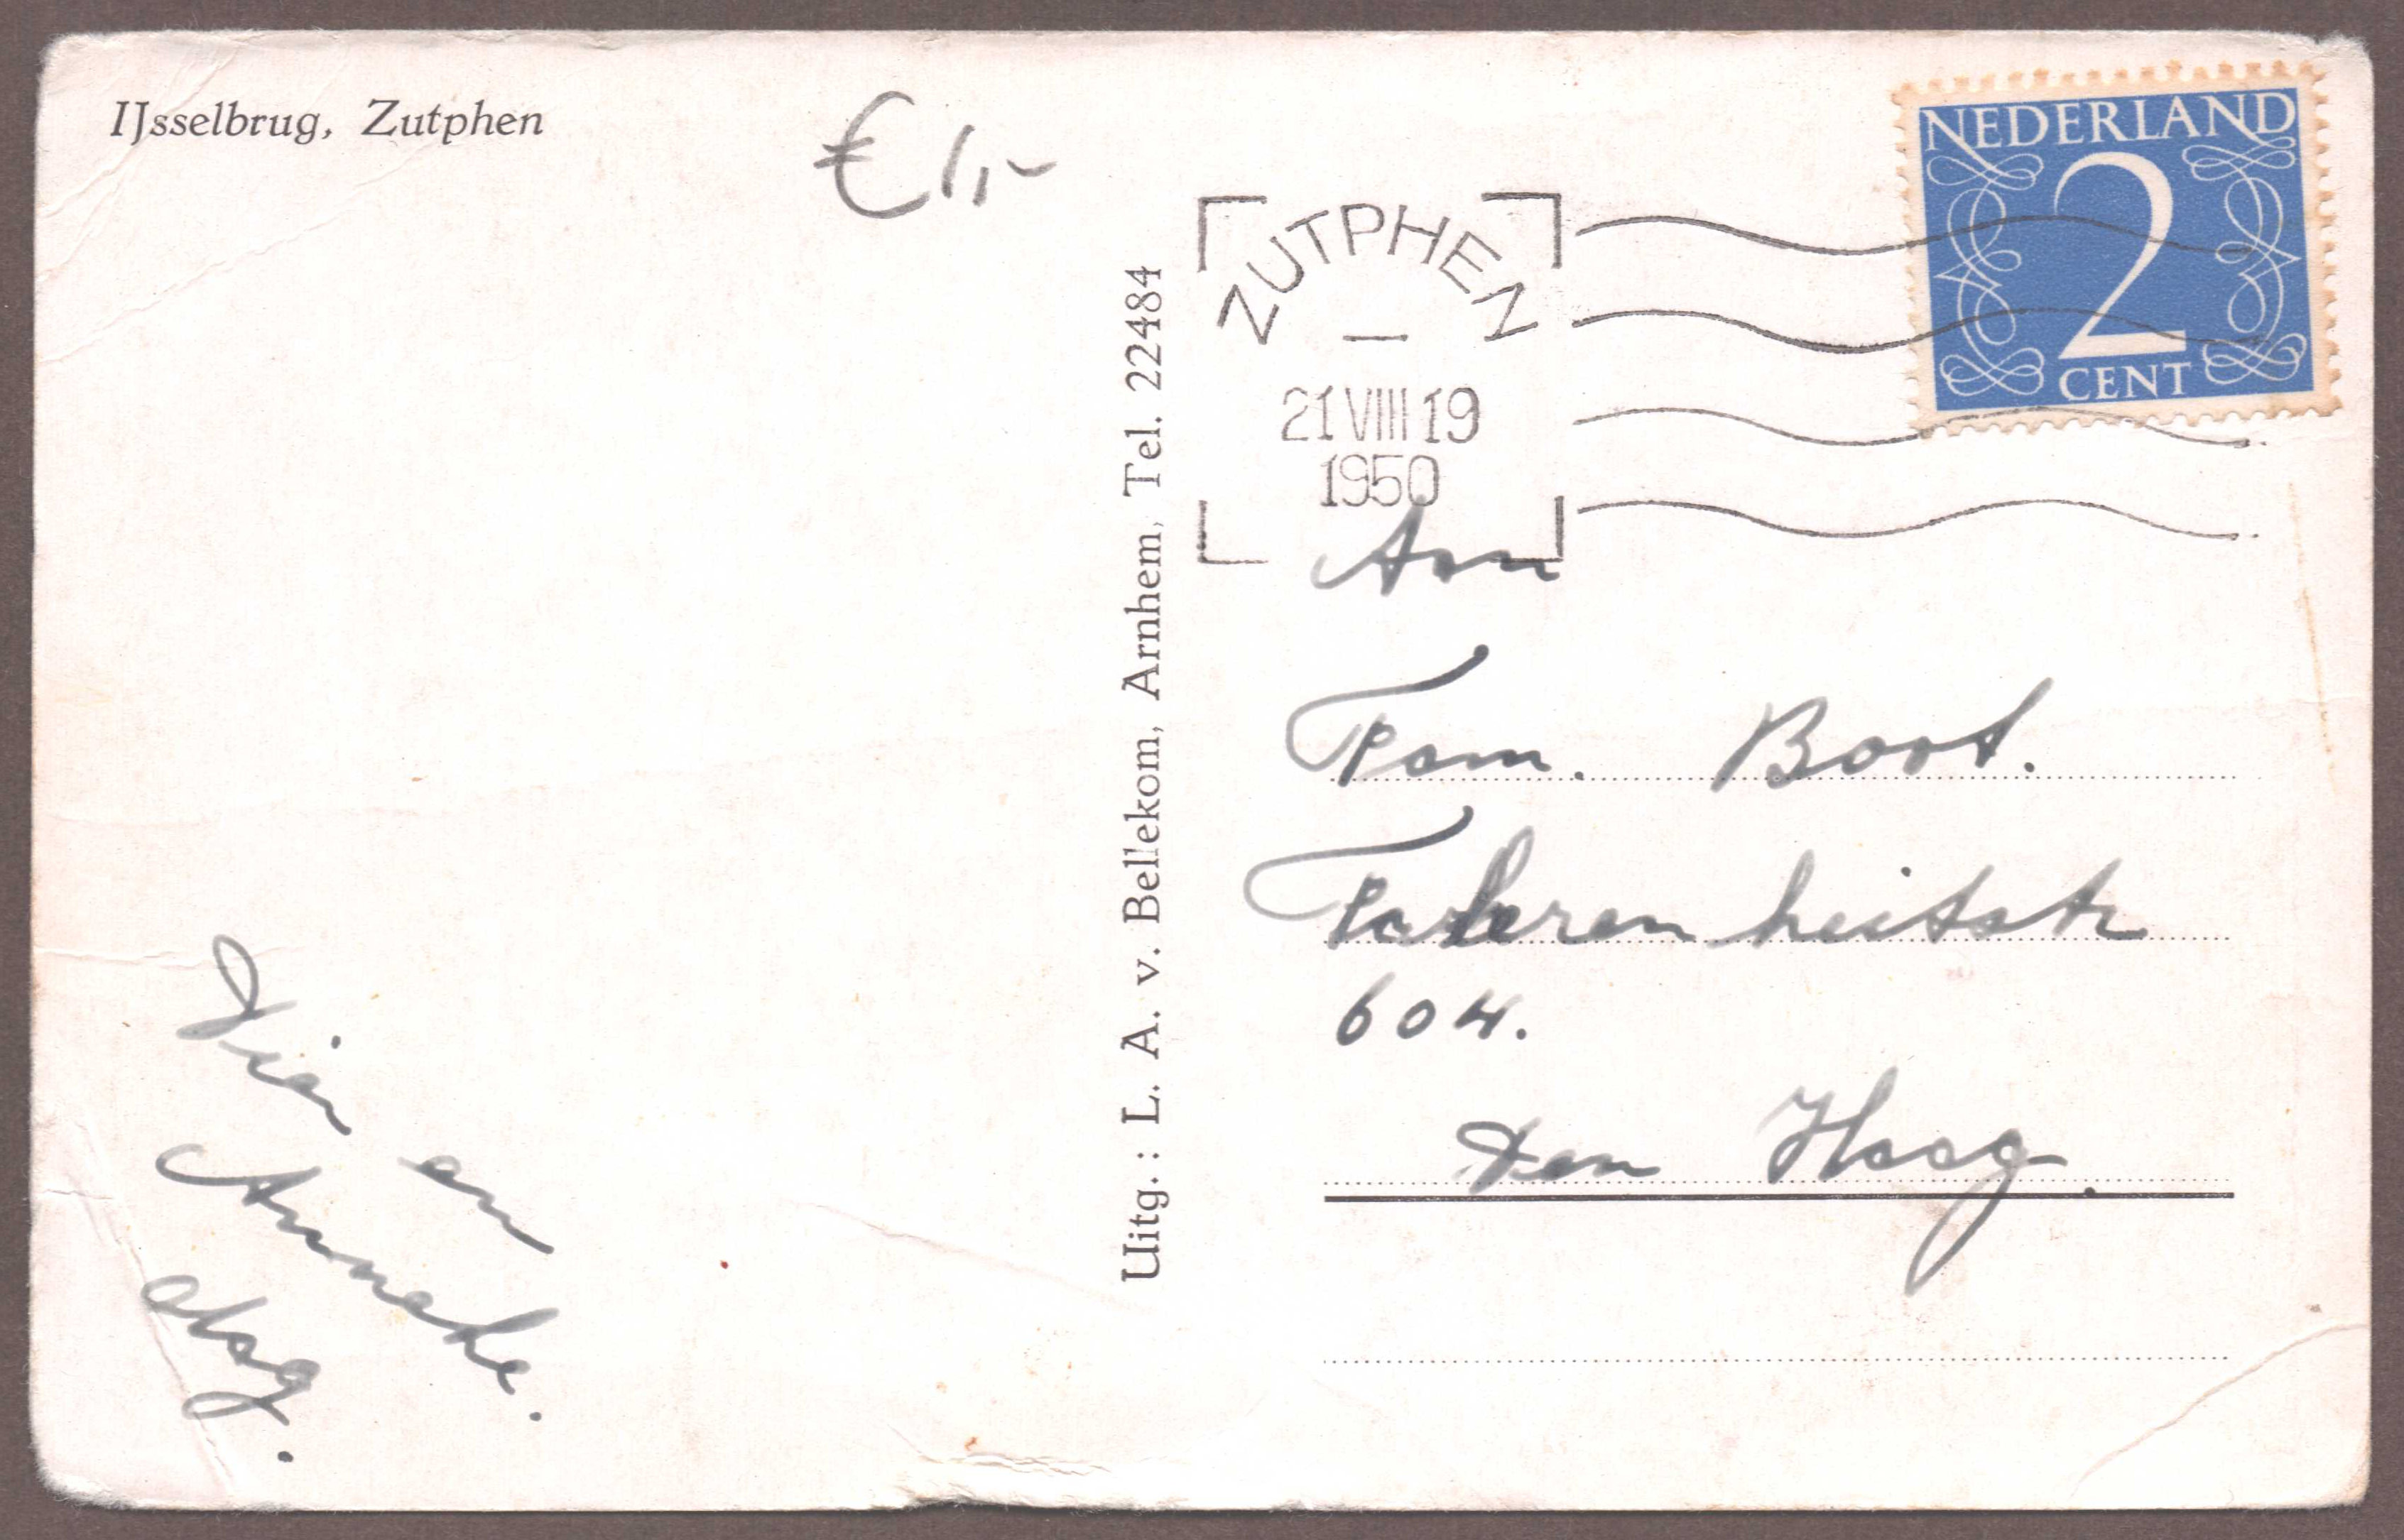 IJsselbrug, Zutphen
€ 1,-
NEDERLAND
2
CENT
ZUTPHEN
21 VIII 19
1950
Uitg.: L. A. v. Bellekom, Arnhem, Tel. 22484
Aan
Fam. Boot.
Fahrenheitstr
604.
Den Haag.
Dien en
Anneke.
dag.